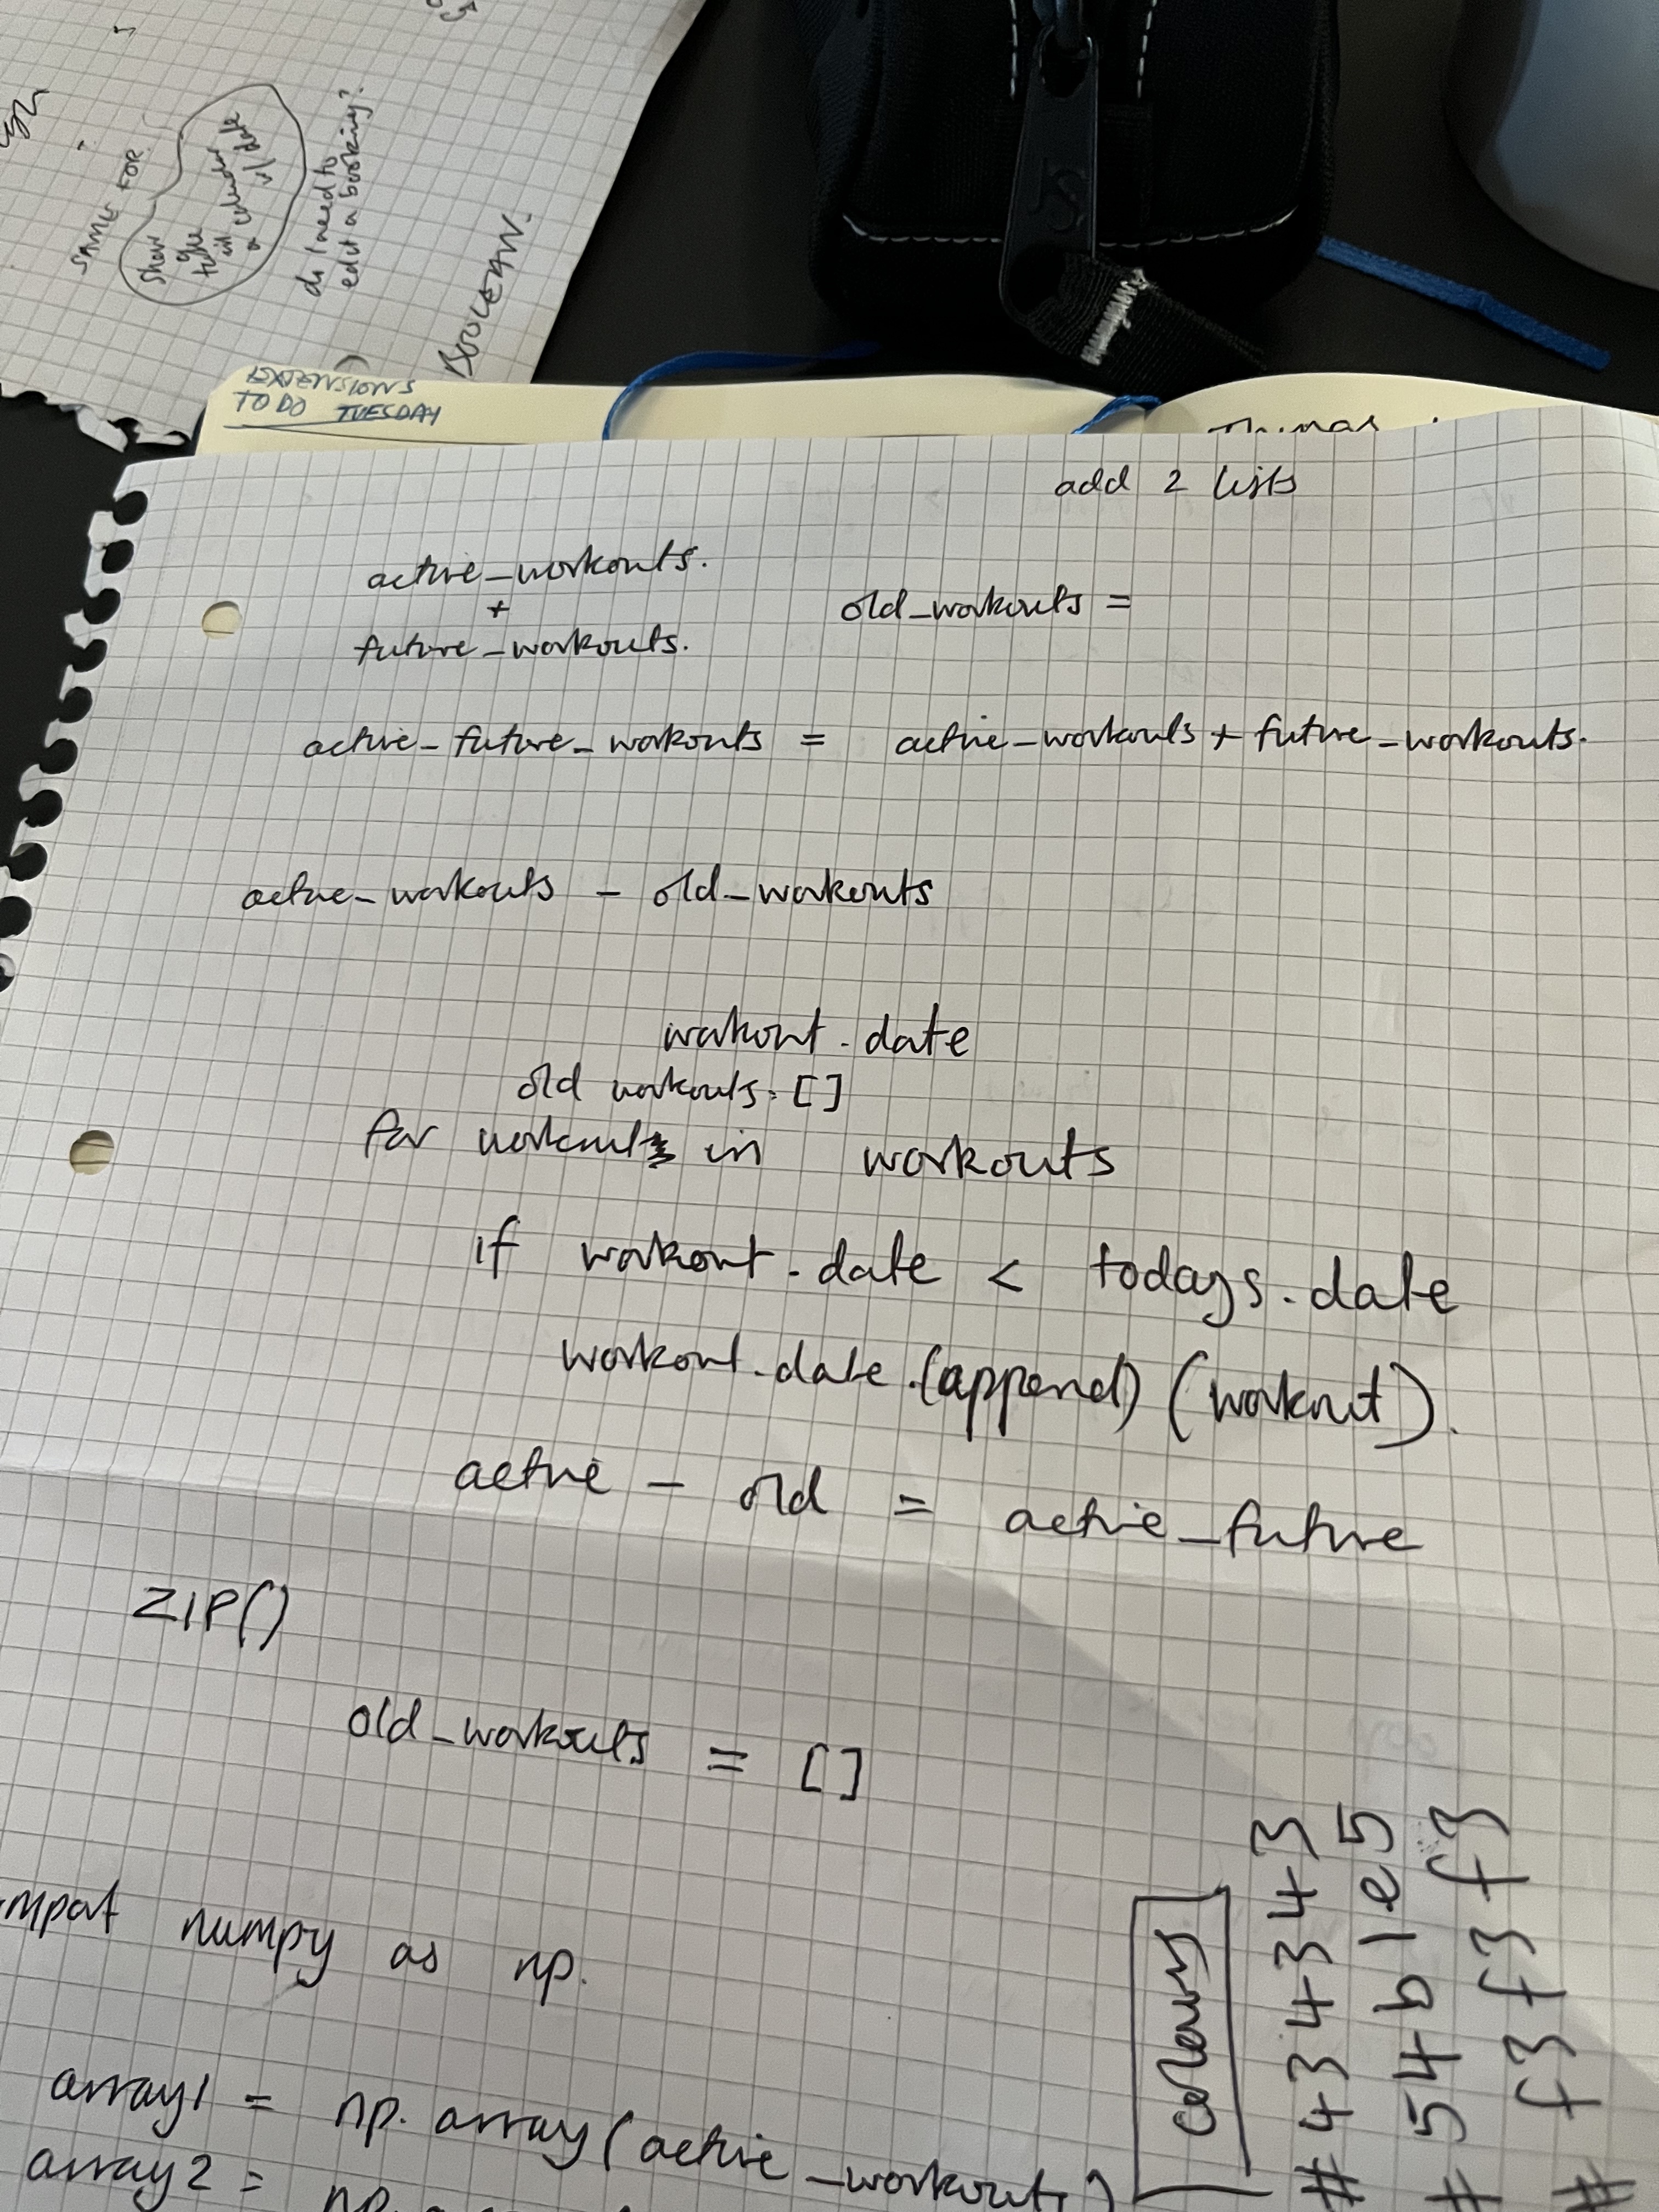 SAME FOR
Show
gyke
in calendar
a w/ date
do I need to
edit a booking?
BOOLEAN.
EXTENSIONS
TO DO TUESDAY
Things
add 2 lists
active_workouts.
+
future_workouts.
old_workouts =
active_future_workouts = active_workouts + future_workouts.
active_workouts - old_workouts
workout.date
old workouts. []
for workout in workouts
if workout.date < todays.date
workout.date.(append) (workout).
active - old = active_future
ZIP()
old_workouts = []
import numpy as np.
array1 = np.array(active_workouts)
array2 = np.
colours
#434343
#54b1e5
#f3f3f3